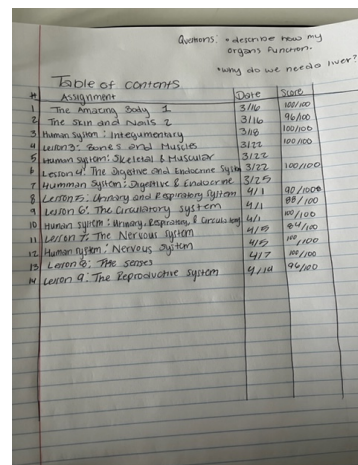 Questions: • describe how my
organs function.
• why do we need a liver?
Table of contents
# Assignment Date Score
1 The Amazing Body 1 3/16 100/100
2 The Skin and Nails 2 3/16 96/100
3 Human System: Integumentary 3/18 100/100
4 Lesson 3: Bones and Muscles 3/22 100/100
5 Human system: Skeletal & Muscular 3/22
6 Lesson 4: The Digestive and Endocrine System 3/22 100/100
7 Humman System: Digestive & Endocrine 3/25
8 Lesson 5: Urinary and Respiratory System 4/1 90/1000
9 Lesson 6: The Circulatory system 4/1 88/100
10 Human system: Urinary, Respiratory, & 4/1 100/100
11 Lesson 7: The Nervous System 4/5 84/100
12 Human system: Nervous System 4/5 100/100
13 Lesson 8: The senses 4/7 100/100
14 Lesson 9: The Reproductive system 96/100